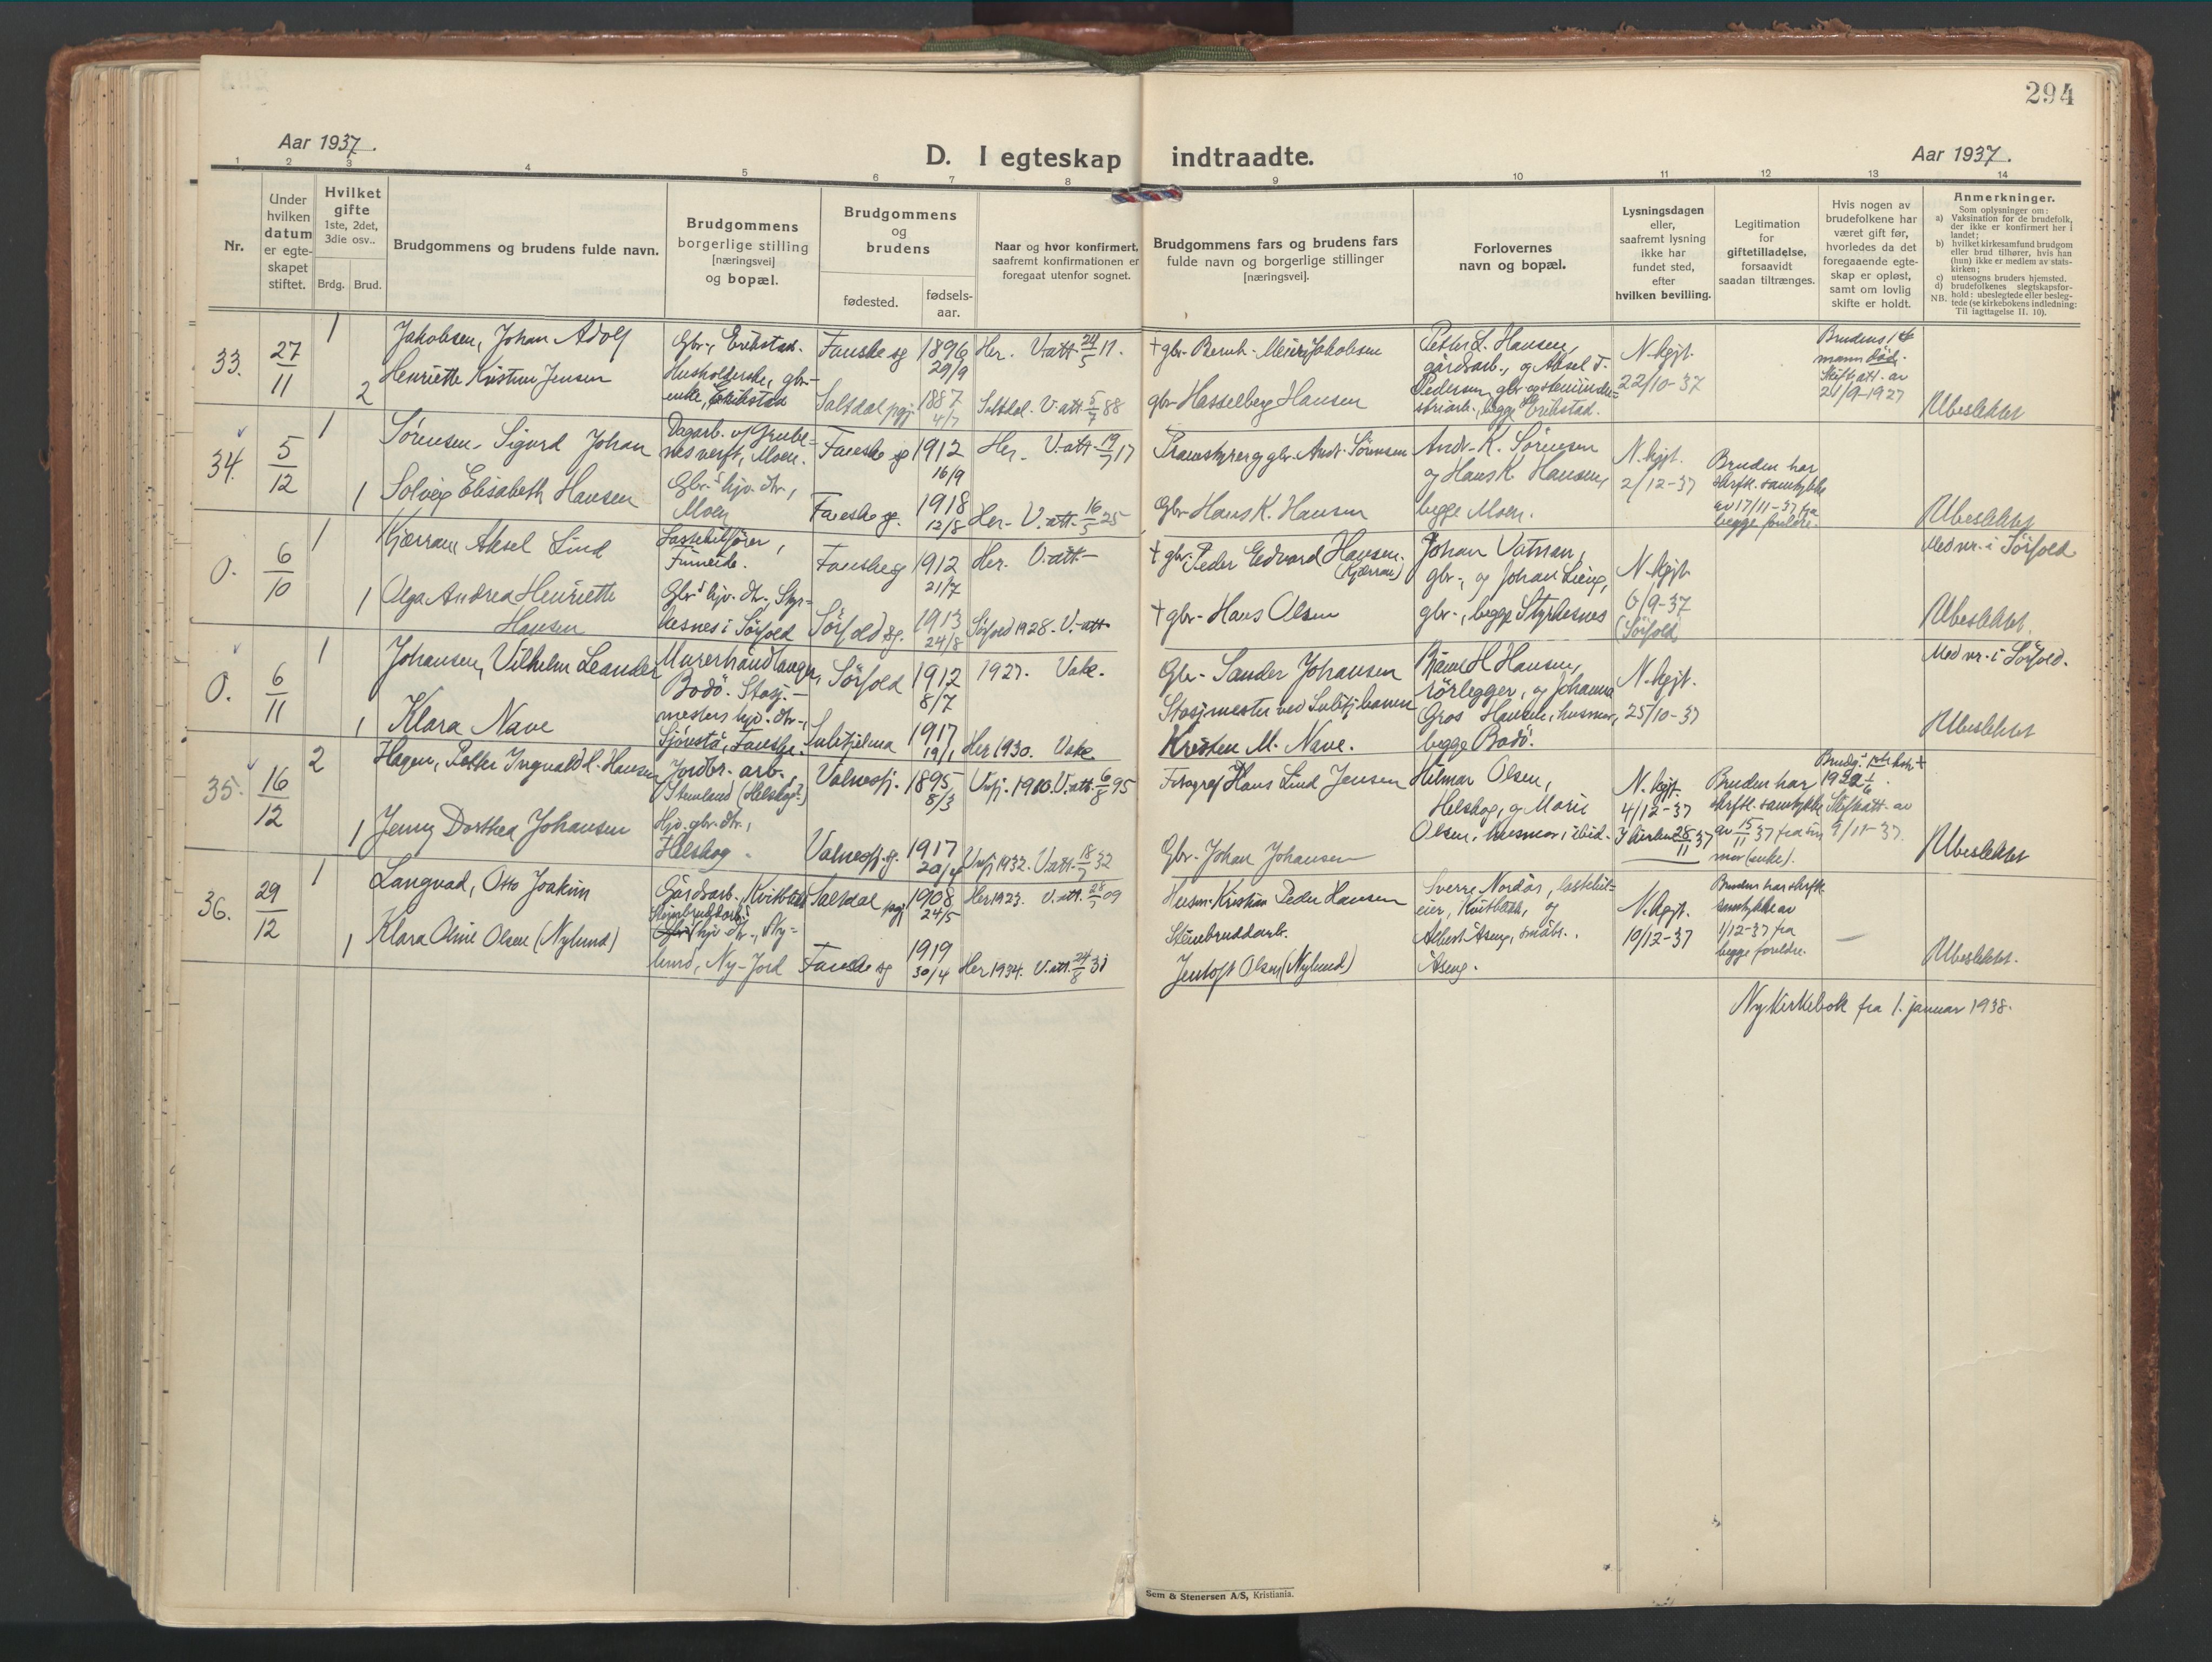 294
Aar 1937.
D. I egteskap indtraadte.
Aar 1937.
1 2 3 4 5 6 7 8 9 10 11 12 13 14
Nr.
Under hvilken datum er egteskapet stiftet.
Hvilket gifte 1ste, 2det, 3die osv..
Brdg. Brud.
Brudgommens og brudens fulde navn.
Brudgommens borgerlige stilling [næringsvei] og bopæl.
Brudgommens og brudens
fødested.
fødsels-aar.
Naar og hvor konfirmert, saafremt konfirmationen er foregaat utenfor sognet.
Brudgommens fars og brudens fars fulde navn og borgerlige stillinger [næringsvei].
Forlovernes navn og bopæl.
Lysningsdagen eller, saafremt lysning ikke har fundet sted, efter hvilken bevilling.
Legitimation for giftetilladelse, forsaavidt saadan tiltrænges.
Hvis nogen av brudefolkene har været gift før, hvorledes da det foregaaende egteskap er opløst, samt om lovlig skifte er holdt.
Anmerkninger.
Som oplysninger om:
a) Vaksination for de brudefolk, der ikke er konfirmert her i landet;
b) hvilket kirkesamfund brudgom eller brud tilhører, hvis han (hun) ikke er medlem av statskirken;
c) utensogns bruders hjemsted.
d) brudefolkenes slegtskapsforhold: ubeslegtede eller beslegtede (se kirkebokens indledning: Til iagttagelse II. 10).
NB.
33. 27/11 1 Jakobsen, Johan Adolf
Gbr., Erikstad.
Fauske sg 1896 29/9
Her. V.att. 24/5 11.
+ gbr. Bernh. Meier Jakobsen
Petter L. Hansen, gårdsarb., og Aksel
Pedersen, gbr. og
begge Erikstad.
N. kgjt. 22/10-37
Brudens 1ste mann død. Skift.att. av 21/9-1927
2 Henriette Kristine Jensen
Husholderske, gbr. enke, Erikstad
Saltdal pgj 1887 4/7
Saltdal. V.att. 5/7 88
gbr. Hasselberg Hansen
Ubeslektet
34. 5/12 1 Sørensen, Sigurd Johan
Dagarb. v/ Grubenes verft, Moen.
Fauske sg 1912 16/9
Her. V.att. 19/7 17
Pramstyrer og gbr. Andr. Sørensen
Andr. K. Sørensen og Hans K. Hansen, begge Moen.
N. kgjt. 2/12-37
Bruden har skrftl. samtykke av 17/11-37 fra begge foreldre.
1 Solveig Elisabeth Hansen
Gbr.s hjv. dtr., Moen
Fauske sg. 1918 12/8
Her. V.att. 16/5 25
Gbr. Hans K. Hansen
Ubeslektet
0. 6/10 1 Kjærran, Aksel Lind
Lastebilfører, Finneide.
Fauske sg 1912 21/7
Her. V.att.
+ gbr. Peder Edvard Hansen (Kjærran)
Johan Vatman, gbr., og Johan Lieng, gbr., begge Styrkesnes
N. kgjt. 6/9-37 (Sørfold)
Med nr. i Sørfold
1 Olga Andrea Henriette Hansen
Gbr.s hjv. dtr., Styrkesnes i Sørfold
Sørfold sg. 1913 24/8
Sørfold 1928. V.att.
+ gbr. Hans Olsen
Ubeslektet.
0. 6/11 1 Johansen, Vilhelm Leander
Murerhåndlanger, Bodø.
Sørfold 1912 8/7
1927. Vake.
Gbr. Sander Johansen
H. Hansen, rørlegger, og Johanna Gros Hansen, husmor, begge Bodø.
N. kgjt. 25/10-37
Med nr. i Sørfold.
1 Klara Nave
Stasj.mesters hjv. dtr., Sjønstå, Fauske.
Sulitjelma 1917 19/1
Her 1930. Vake
Stasjmester ved Sulitj.banen Kristen M. Nave.
Ubeslektet
35. 16/12 2 Hagen, Petter Ingvald H. Hansen
Jordbr. arb., Stemland (Helskog?)
Valnesfj. 1895 8/3
Vnfj. 1910. V.att. 6/8 95
Fotograf Hans Lind Jensen
Hilmar Olsen, Helskog, og Marie Olsen, husmor,
N. kgjt. 4/12-37 I kirken 28/11 37
Bruden har skrftl. samtykke av 15/11 37 fra sin mor (enke).
Brudg.s
Skifteatt. av 9/11-37.
1 Jenny Dorthea Johansen
Hjv. gbr. dtr., Helskog.
Valnesfj. sg. 1917 20/4
Vnfj 1932. V.att. 18/7 32
Gbr. Johan Johansen
Ubeslektet
36. 29/12 1 Langvad, Otto Joakim
Gårdsarb., Kvitblik
Saltdal pgj 1908 24/5
Her 1923. V.att. 28/5 09
Husm. Kristian Peder Hansen
Sverre Nordås, lastebileier, Kvitblik, og Albert Åseng, småbr., Åseng.
N. kgjt. 10/12-37
Bruden har skrftl. samtykke av 1/12-37 fra begge foreldre.
—
1 Klara Oline Olsen (Nylund)
Stenbruddarb.s hjv. dtr., Nylund, Ny-Jord
Fauske sg 1919 30/4
Her 1934. V.att. 24/8 31
Stenbruddarb. Jentoft Olsen (Nylund)
Ubeslektet.
Ny kirkebok fra 1. januar 1938.
Sem & Stenersen A/S, Kristiania.